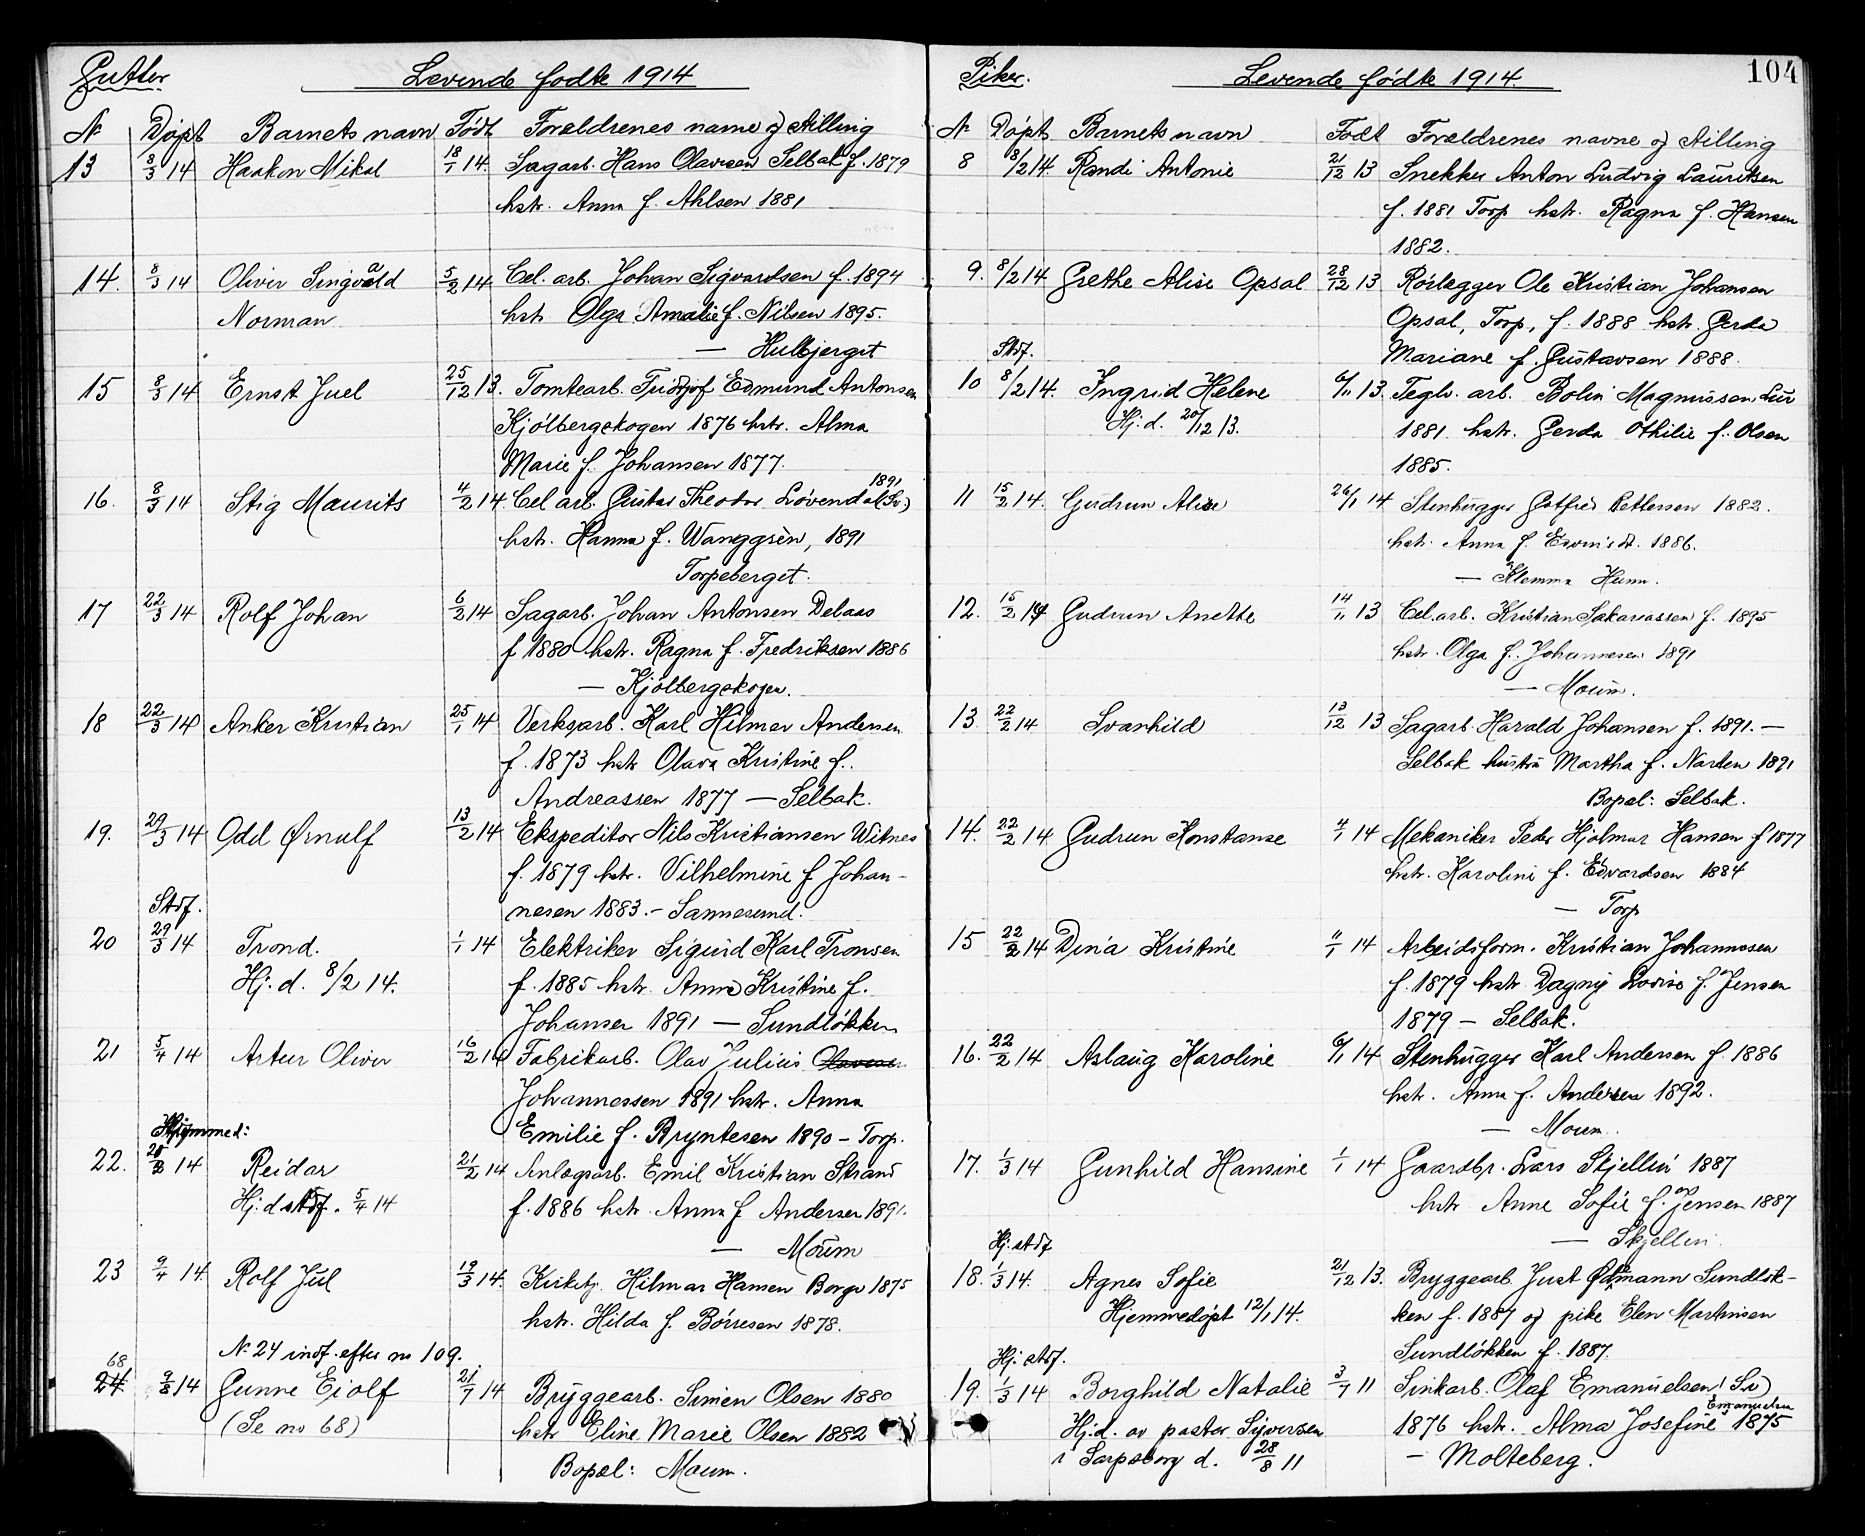 Gutter
Levende fødte 1914
Nr Døpt Barnets navn Født Forældrenes navne og stilling
13 8/3 14 Haakon Mikal 18/1 14. Sagarb. Hans Olavesen Selbak f. 1879
hstr. Anna f. Ahlsen 1881
14. 8/3 14 Oliver Singvald 5/2 14 Cel. arb. Johan Sigvardsen f. 1894
Norman hstr. Olga Amalie f. Nilsen 1895.
— Hulbjerget
15 8/3 14 Ernst Juel 25/12 13. Tomtearb. Fridtjof Edmund Antonsen
Kjølbergskogen 1876 hstr. Alma
Marie f. Johansen 1877.
1891
16. 8/3 14 Stig Maurits 4/2 14 Cel arb. Gustav Theodor Lövendal (Sv.)
hstr. Hanna f. Wanggsèn, 1891
Torpeberget.
17 22/3 14 Rolf Johan 6/2 14 Sagarb. Johan Antonsen Delaas
f 1880 hstr. Ragna f. Fredriksen 1886
— Kjølbergskogen.
18 22/3 14 Anker Kristian 25/1 14 Verksarb. Karl Hilmar Andersen
f. 1873 hstr Olava Kristine f.
Andreassen 1877 — Selbak.
19. 29/3 14 Odd Ørnulf 13/2 14 Ekspeditor Nils Kristiansen Witnes
f. 1879 hstr. Vilhelmine f Johan-
nesen 1883. - Sannesund.
Stdf.
20 29/3 14 Trond. 1/1 14 Elektriker Sigurd Karl Tronsen
Hj. d. 8/2 14. f. 1885 hstr. Anna Kristine f.
Johansen 1891 — Sundløkken
21 5/4 14 Artur Oliver 16/2 14 Fabrikarb. Olav Julius
Johannessen 1891 hstr. Anna
Emilie f. Bryntesen 1890 - Torp.
22. 14 Reidar 21/2 14 Anlægsarb. Emil Kristian Strand
Hj: d stdf. 5/4 14 f. 1886 hstr. Anna f Andersen 1891.
— Moum
23 9/4 14. Rolf Jul 19/3 14. Kirketj. Hilmar Hansen Borge 1875
hstr. Hilda f. Børresen 1878.
Nr 24 indf. efter no 109.
68
24 9/8 14 Gunne Eiolf 21/7 14 Bryggearb. Simen Olsen 1880
(Se no 68) hstr Eline Marie Olsen 1882
Bopæl: Moum.
Piker.
Levende fødte 1914.
104
Nr Døpt Barnets navn Født Forældrenes navne og stilling
8 8/2 14. Randi Antonie 21/12 13 Snekker Anton Ludvig Lauritsen
f. 1881 Torp hstr. Ragna f. Hansen
1882.
9. 8/2 14 Grethe Alise Opsal 28/12 13 Rørlægger Ole Kristian Johansen
Opsal, Torp, f. 1888 hstr. Gerda
Mariane f Gustavsen 1888.
Stdf.
10 8/2 14. Ingrid Helene 6/11 13. Teglv. arb. Bolin Magnussen Lur
Hj: d. 20/12 13. 1881 hstr. Gerda Othilie f. Olsen
1885.
11 15/2 14. Gudrun Alise 26/1 14 Stenhugger Gotfred Pettersen 1882.
hstr. Anna f. 1886.
— Klemma Hunn.
12. 15/2 14 Gudrun Anette 14/11 13 Cel. arb. Kristian Sakariassen f. 1895
hstr. Olga f. Johannesen 1891
— Moum.
13. 22/2 14 Svanhild 13/12 13 Sagarb. Harald Johansen f. 1891. —
Selbak hustru Martha f. Narten 1891
Bopæl: Selbak.
14. 22/2 14 Gudrun Konstanse 4/1 14 Mekaniker Peder Hjalmar Hansen f 1877
hstr. Karoline f. Edvardsen 1884
— Torp
15 22/2 14 Dina Kristine 11/1 14 Arbeidsform. Kristian Johannesen
f. 1879 hstr Dagny Lovise f. Jensen
1879 - Selbak.
16. 22/2 14 Aslaug Karoline 6/1 14 Stenhugger Karl Andersen f. 1886
hstr. Anna f. Andersen 1892.
— Moum.
17. 1/3 14 Gunhild Hansine 1/1 14 Gaardbr. Lars Skjellin 1887
hstr Anne Sofie f. Jensen 1887
— Skjellin
Hj. stdf
18. 1/3 14. Agnes Sofie 21/12 13. Bryggearb. Just Ødmann Sundløk-
Hjemmedøpt 12/1 14. ken f. 1887 og pike Elen Martinsen
Sundløkken f. 1887.
Hj: stdf.
19. 1/3 14 Borghild Natalie 3/7 11 Sinkarb. Olaf Emanuelsen (Sv)
Emanuelsen
Hj: d. av pastor Syversen 1876 hstr. Alma Josefine 1875
i Sarpsborg d. 28/8 11 - Molteberg.